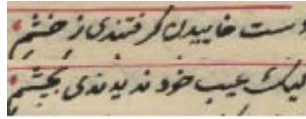 دست خاییدن گرفتندی ز خشم
لیک عیب خود ندیدندی بچشم